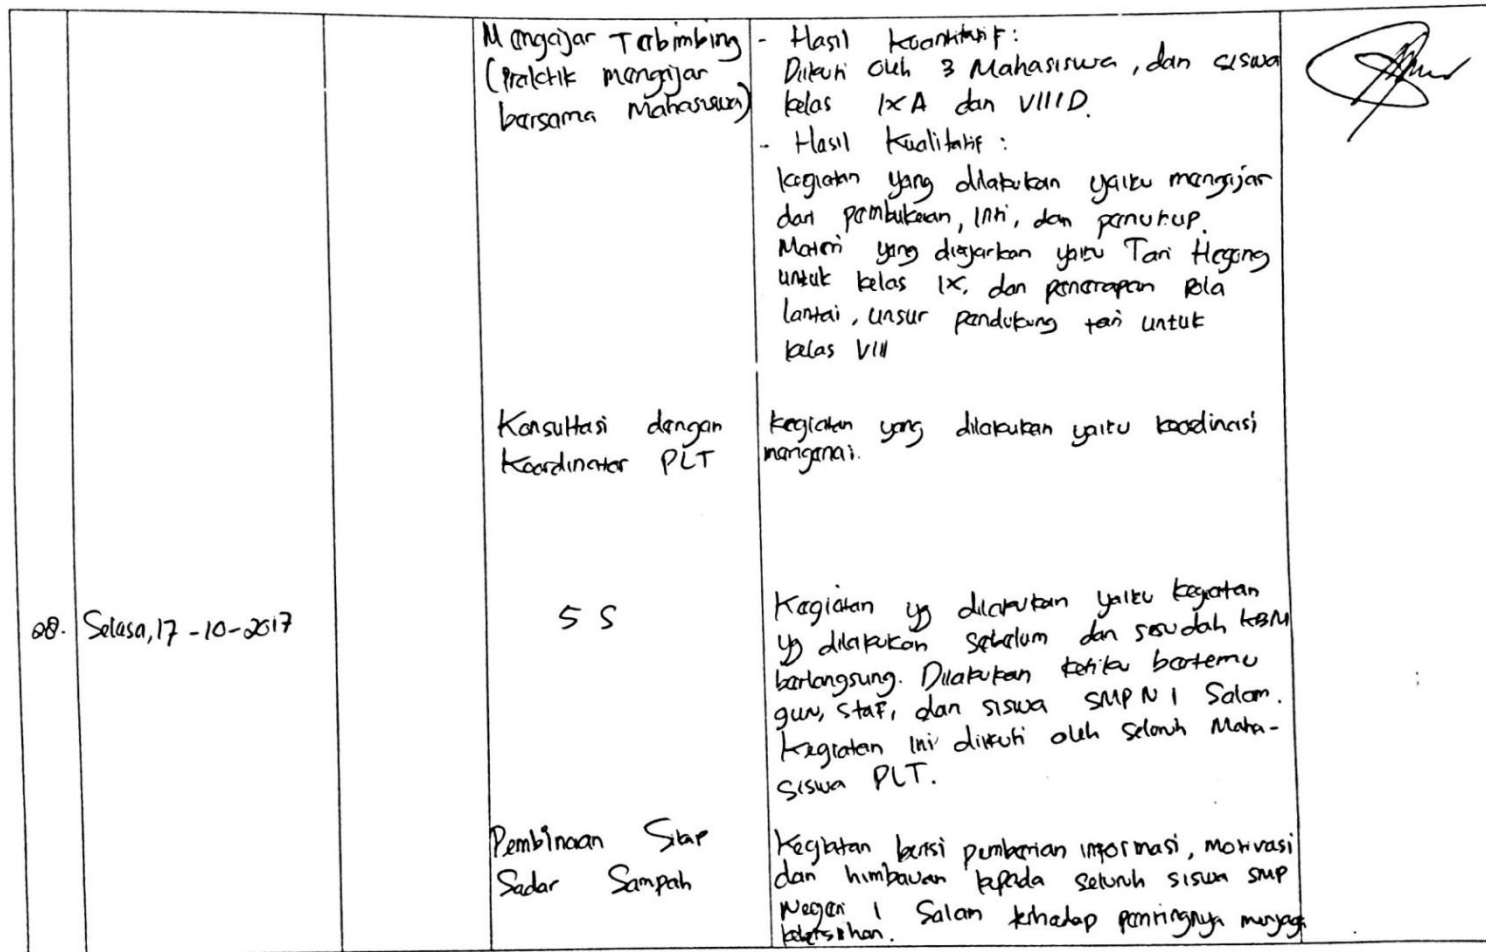 Mengajar Terbimbing
(Praktik mengajar
bersama Mahasiswa)
- Hasil Kuantitatif:
Diikuti oleh 3 Mahasiswa, dan siswa
kelas IX A dan VIII D.
- Hasil Kualitatif :
kegiatan yang dilakukan yaitu mengajar
dari pembukaan, inti, dan penutup.
Materi yang diajarkan yaitu Tari Hegong
untuk kelas IX, dan penerapan Pola
lantai, unsur pendukung tari untuk
kelas VIII
Konsultasi dengan
Koordinator PLT
kegiatan yang dilakukan yaitu koordinasi
mengenai.
28.
Selasa, 17 - 10 - 2017
5 S
Kegiatan yg dilakukan yaitu kegiatan
yg dilakukan sebelum dan sesudah KBM
berlangsung. Dilakukan ketika bertemu
guru, staf, dan siswa SMP N 1 Salam.
Kegiatan ini diikuti oleh seluruh Maha-
siswa PLT.
Pembinaan Sikap
Sadar Sampah
Kegiatan berisi pemberian informasi, motivasi
dan himbauan kepada seluruh siswa SMP
Negeri 1 Salam terhadap pentingnya menjaga
kebersihan.